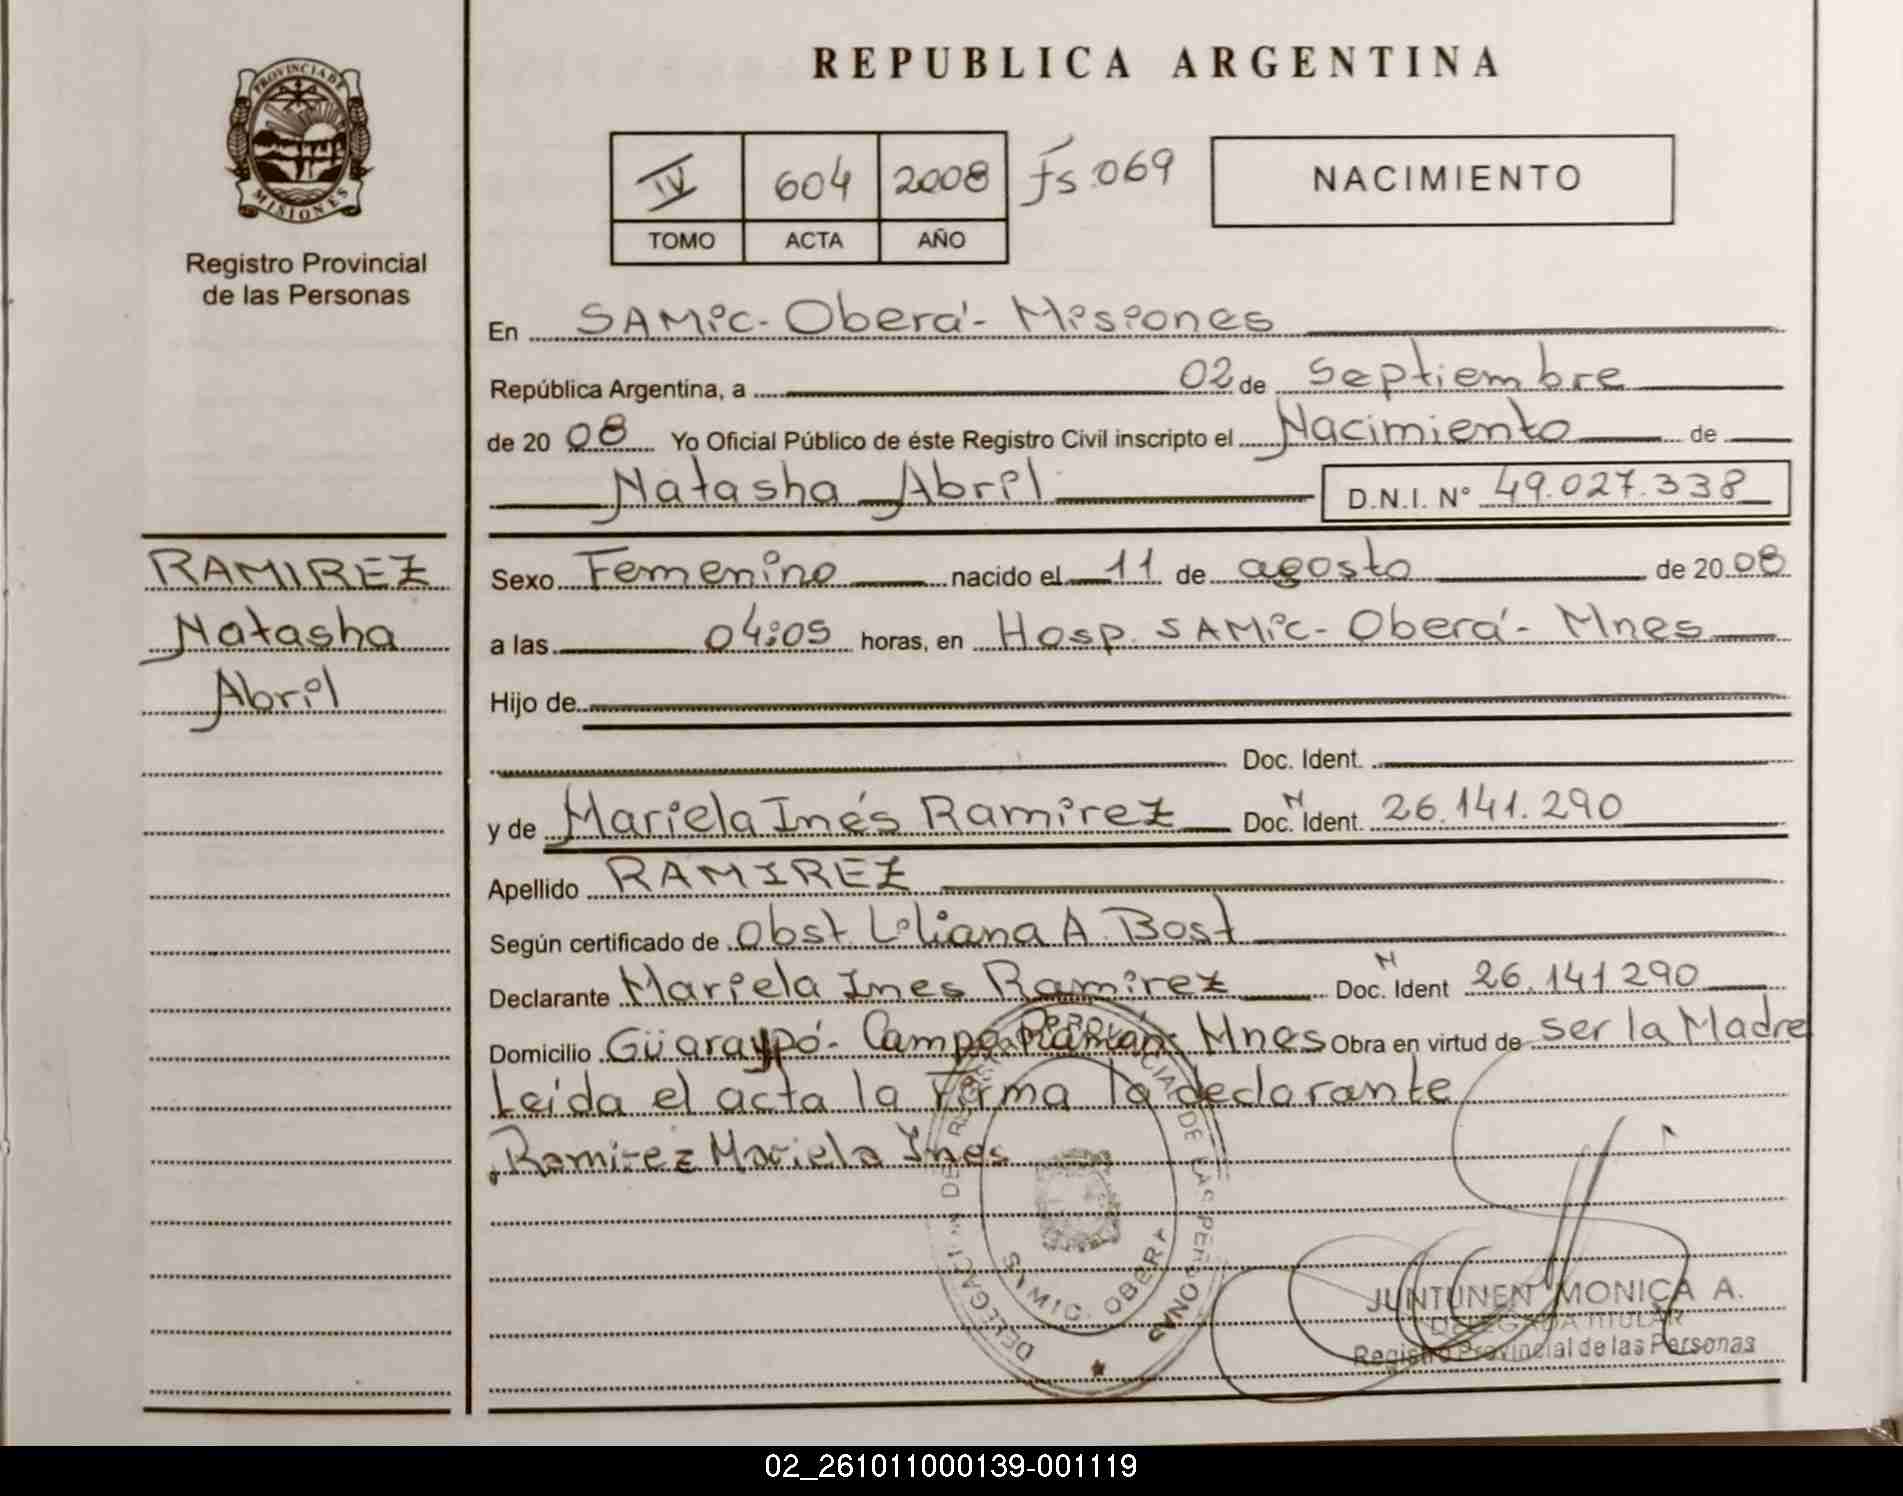 PROVINCIA DE
MISIONES
Registro Provincial
de las Personas
RAMIREZ
Natasha
Abril
REPUBLICA ARGENTINA
IV 604 2008 Fs 069
TOMO ACTA AÑO
NACIMIENTO
En SAMiC- Oberá- Misiones
República Argentina, a 02 de Septiembre
de 20 08 Yo Oficial Público de éste Registro Civil inscripto el Nacimiento de
Natasha Abril D.N.I. N° 49.027.338
Sexo Femenino nacido el 11 de agosto de 20 08
a las 04:05 horas, en Hosp. SAMiC- Oberá- Mnes
Hijo de
Doc. Ident.
y de Mariela Inés Ramirez Doc. N Ident. 26.141.290
Apellido RAMIREZ
Según certificado de Obst. Liliana A. Bost
Declarante Mariela Ines Ramirez Doc. N Ident 26.141.290
Domicilio Güaraypó- Campo Ramón- Mnes Obra en virtud de ser la Madre
Leída el acta la firma la declarante
Ramirez Mariela Ines
SAMIC OBERA
JUNTUNEN MONICA A.
DELEGADA TITULAR
Registro Provincial de las Personas
02_261011000139-001119